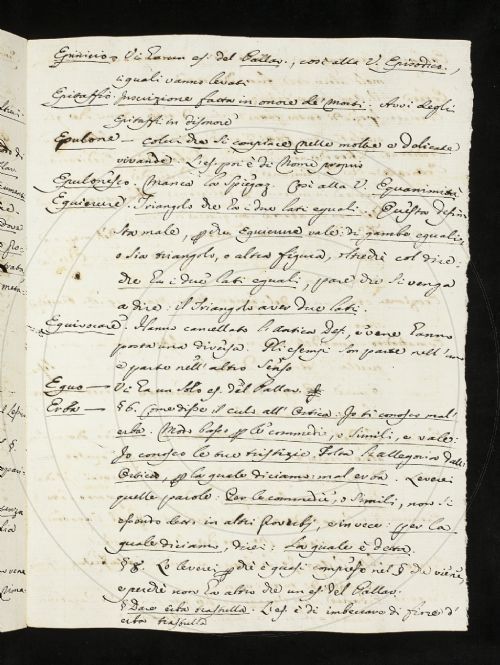 Epinicio. Vi hanno es. del Pallav., così alla V. Episodico,
i quali vanno levati
Epitaffio. Inscrizione fatta in onore de' Morti. Avvi degli
Epitaffi in disnore
Epulone — colui che si compiace nelle molte e delicate
vivande. L'es. poi è di Nome proprio
Epulonesco. Manca la Spiegaz. Così alla V. Equanimità
Equicrure. Triangolo che ha i due lati eguali. Questa defini
sta male, perchè Equicrure vale: di gambe eguali,
o sia triangolo, o altra figura, oltrechè col dire:
che ha i due lati eguali, pare che si venga
a dire: il Triangolo aver due lati.
Equivocare. Hanno cancellato l'antica Def., e ve ne hanno
posta una diversa. Gli esempi son parte nell'uno
e parte nell'altro senso
Equo — Vi ha un solo es. del Pallav.
Erba — §6. Come disse il culo all'Ortica: Io ti conosco mal'
erba: Modo basso per le commedie, o simili, e vale:
Io conosco le tue tristizie. Tolta l'allegoria dalla
Ortica, per la quale diciamo: mal erba. Leverei
quelle parole: Per le commedie, o simili, non si
essendo detto in altri Proverbj, e invece: per la
quale diciamo, direi: La quale è detta.
§8. Lo leverei perchè è quasi compreso nel § che viene,
e perchè non ha altro che un es. del Pallav.
§ Dare erba trastulla. L'es. è di imbeccare di fiore d'
erba trastulla